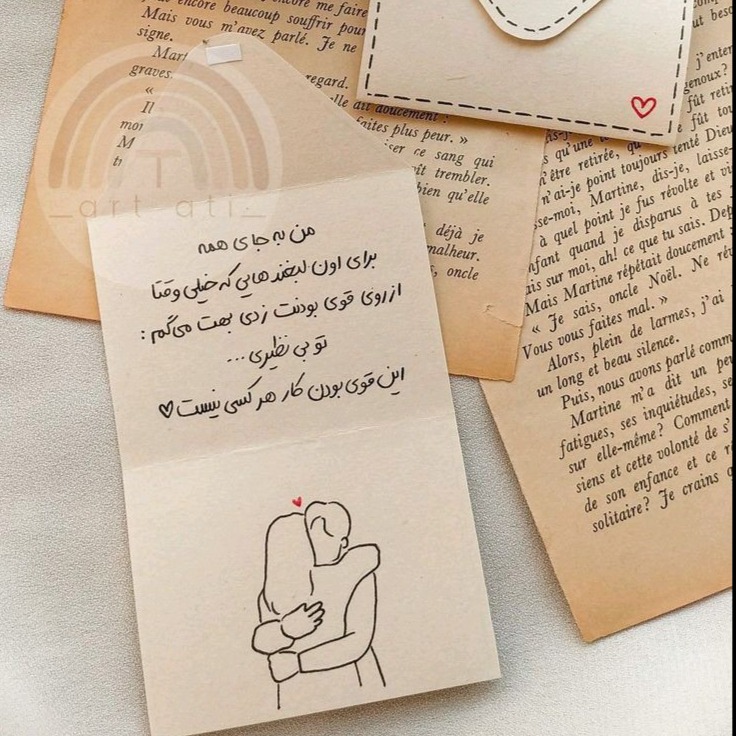 encore beaucoup souffrir pour
Mais vous m'avez parlé. Je ne
signe.
Mart
graves.
regard.
«
Il
dit doucement :
faites plus peur. »
M
ce sang qui
ait trembler.
bien qu'elle
déjà je
malheur.
oncle
_art_ati_
من به جای همه
برای اون لبخند هایی که خیلی وقتا
از روی قوی بودنت زدی بهت می‌گم :
تو بی نظیری ...
این قوی بودن کار هر کسی نیست♡
j'enter
genoux?
fût retir
s qu'une
fût tou
être retirée, qu
n'ai-je point toujours tenté Dieu
se-moi, Martine, dis-je, laisse-
à quel point je fus révolte et vi
nfant quand je disparus à tes
is sur moi, ah! ce que tu sais. Dep
Mais Martine répétait doucement :
« Je sais, oncle Noël. Ne rév
Vous vous faites mal. »
Alors, plein de larmes, j'ai
un long et beau silence.
Puis, nous avons parlé comm
Martine m'a dit un pe
fatigues, ses inquiétudes, se
sur elle-même? Comment
siens et cette volonté de s'
de son enfance et ce r
solitaire? Je crains q